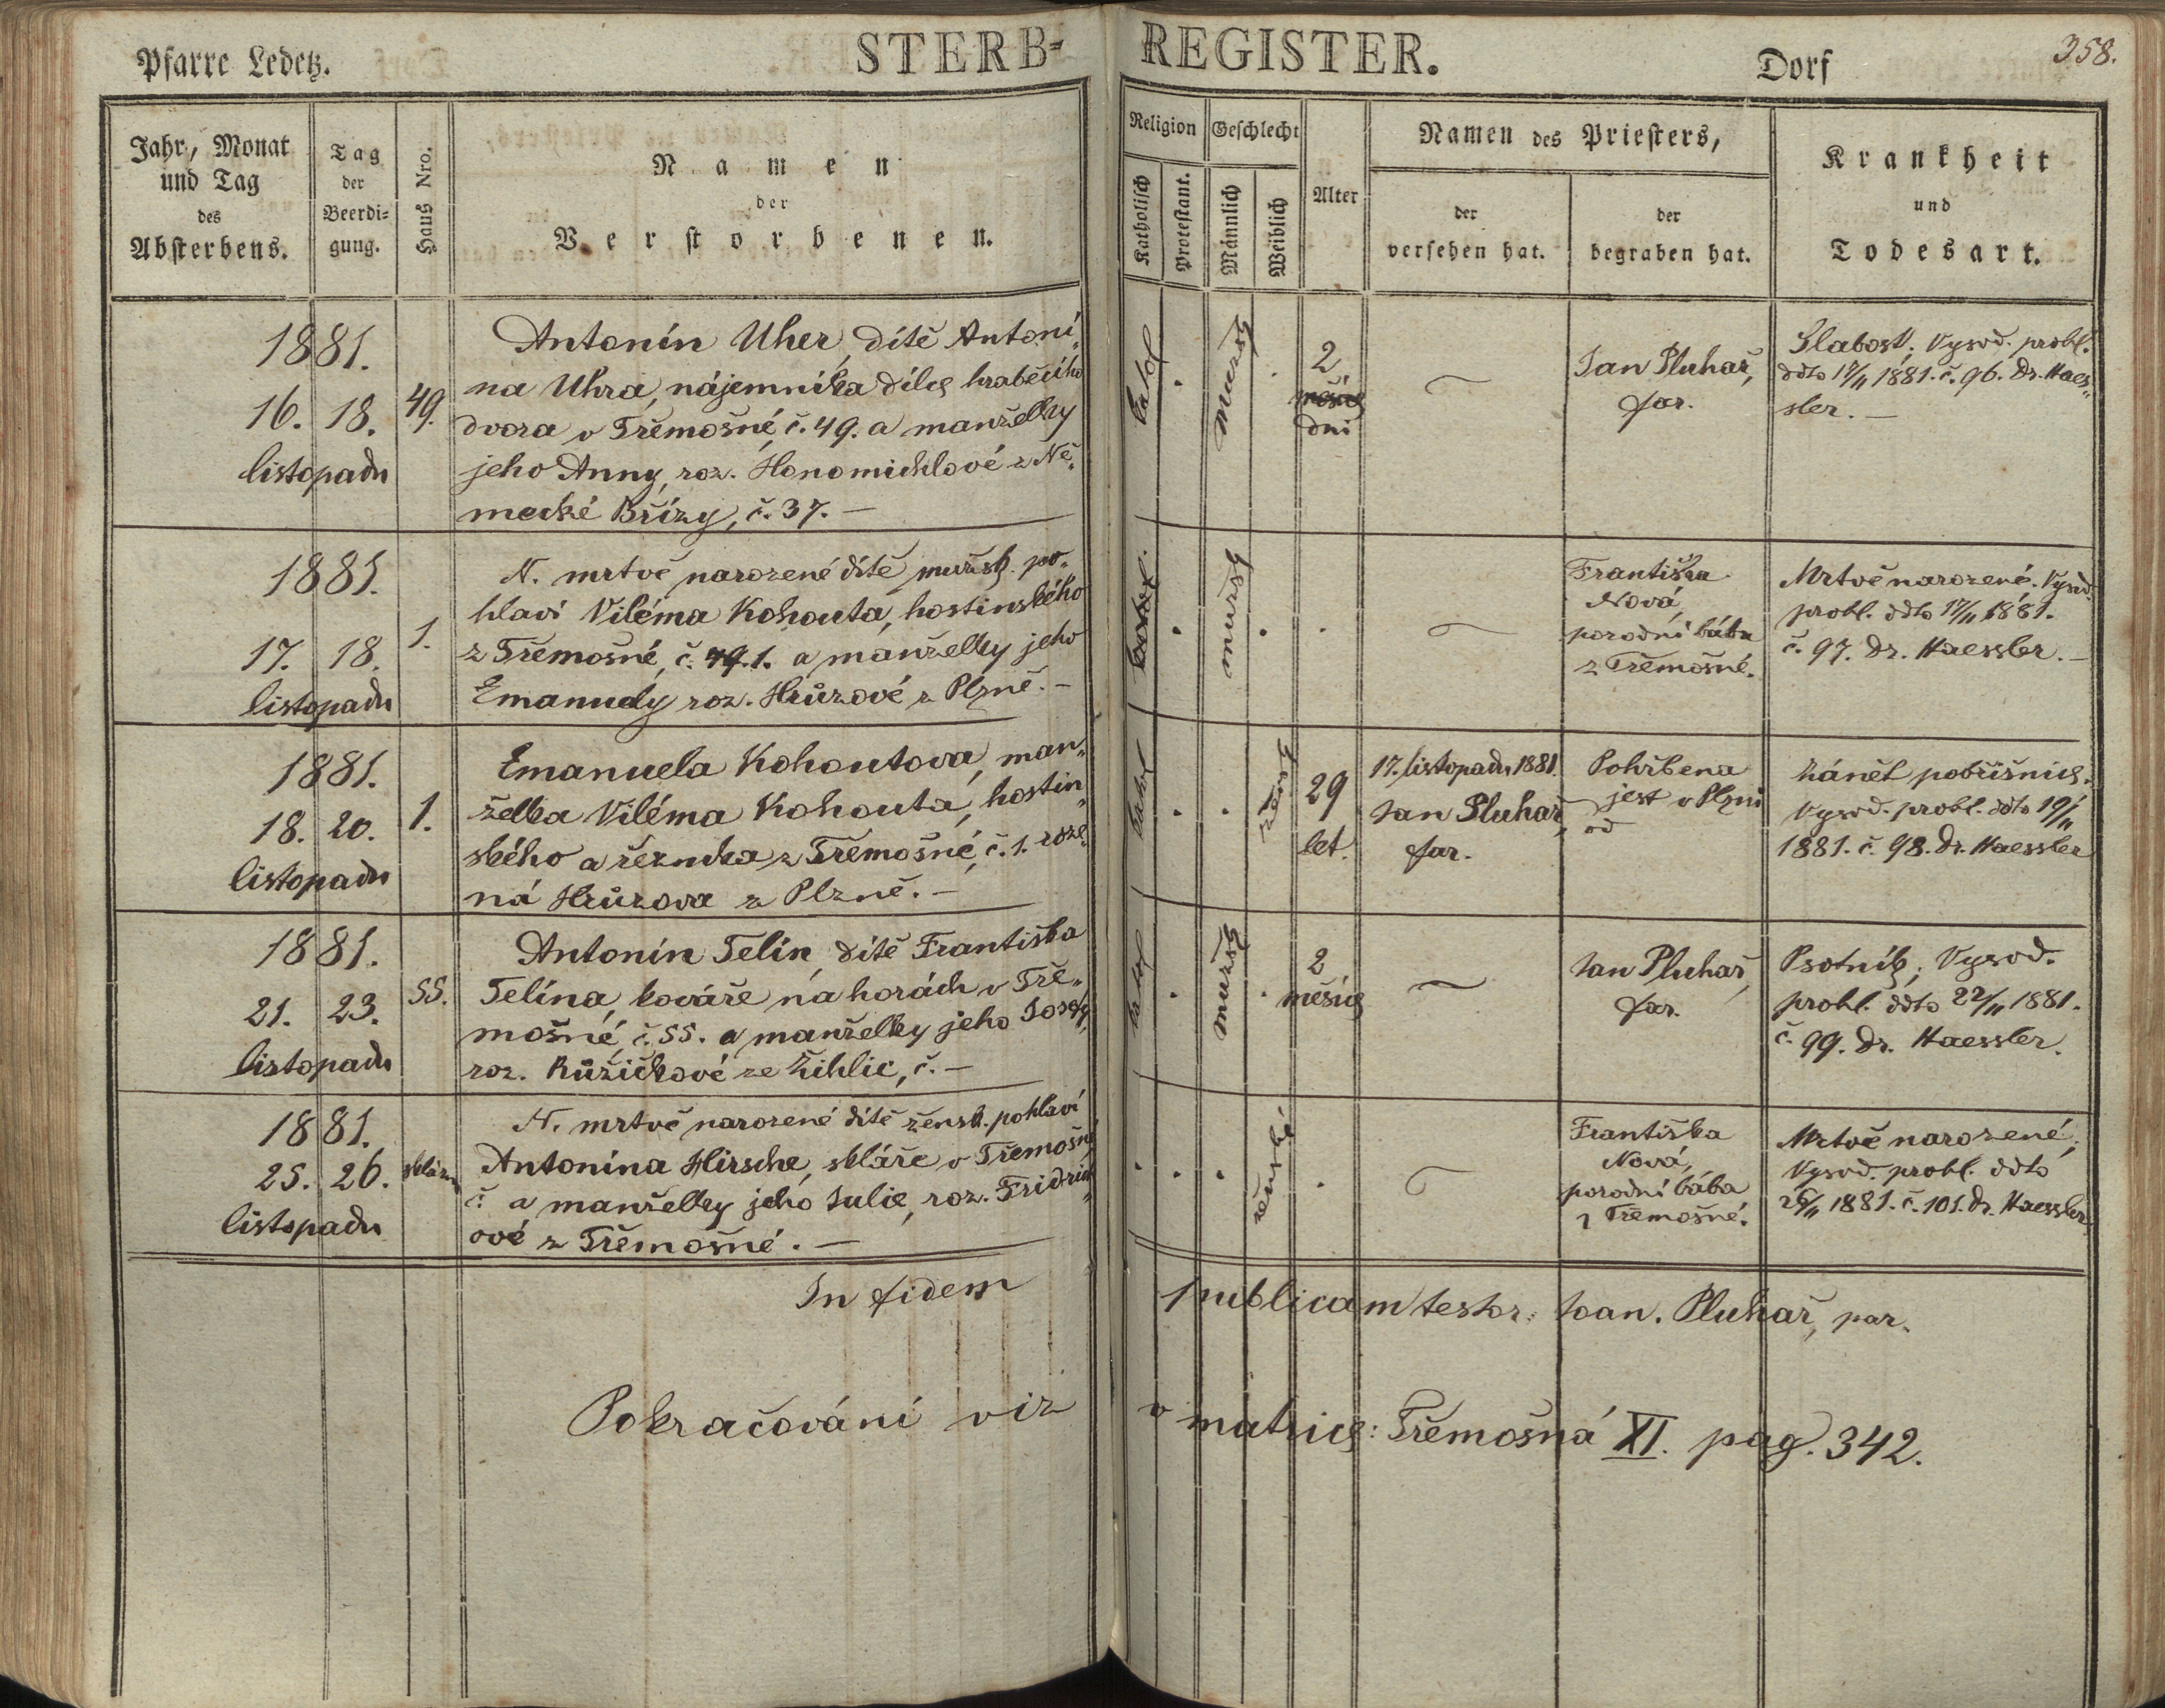 Pfarre Ledetz. STERB= REGISTER. Dorf 358.
Jahr, Monat
und Tag
des
Absterbens.
Tag
der
Beerdi=
gung.
Haus Nro.
Namen
der
Verstorbenen.
Religion
Katholisch
Protestant.
Geschlecht
Männlich
Weiblich
Alter
Namen des Priesters,
der
versehen hat.
der
begraben hat.
Krankheit
und
Todesart.
1881.
16. 18. 49.
listopadu
Antonín Uher, dítě Antoní„
na Uhra, nájemníka dílce hraběcího
dvora v Třemošné, č. 49. a manželky
jeho Anny, roz. Honomichlové z Ně„
mecké Břízy, č. 37. —
katol
.
mužsk
.
2
měsíce
dni
Jan Pluhař,
far.
Slabost; Vysvd. probl.
ddto 17/11 1881. č. 96. Dr. Haes„
sler. —
1881.
17. 18. 1.
listopadu
N. mrtvě narozené dítě mužsk. po„
hlaví Viléma Kohouta, hostinského
z Třemošné, č. 49. 1. a manželky jeho
Emanuely roz. Hrůzové z Plzně. —
katol.
.
mužsk
.
.
Františka
Nová,
porodní bába
z Třemošné.
Mrtvě narozené. Vysvd.
probl. ddto 17/11 1881.
č. 97. Dr. Haessler. —
1881.
18. 20. 1.
listopadu
Emanuela Kohoutova, man„
želka Viléma Kohouta, hostin„
ského a řezníka z Třemošné, č. 1. roze„
ná Hrůzova z Plzně. —
katol
.
.
žensk
29
let.
17. listopadu 1881.
Jan Pluhař,
far.
Pohřbena
jest v Plzni
od
Zánět pobřišnice.
Vysvd. probl. ddto 19/11
1881. č. 98. Dr. Haessler
1881.
21. 23. 55.
listopadu
Antonín Telín, dítě Františka
Telína, kováře na horách v Tře„
mošné, č. 55. a manželky jeho Josefy,
roz. Růžičkové ze Žihlic, č. —
katol
.
mužsk
.
2
měsíce
Jan Pluhař,
far.
Psotník; Vysvd.
probl. ddto 22/11 1881.
č. 99. Dr. Haessler.
1881.
25. 26. sklárna
listopadu
N. mrtvě narozené dítě žensk. pohlaví
Antonína Hirsche, skláře v Třemošné,
č. a manželky jeho Julie, roz. Fridrich„
ové z Třemošné. —
.
.
.
ženské
.
Františka
Nová,
porodní bába
z Třemošné.
Mrtvě narozené;
Vysvd. probl. ddto
26/11 1881. č. 101. Dr. Haessler.
In fidem publicam testor: Joan. Pluhař, par.
Pokračování viz v matrice: Třemošná XI. pag. 342.